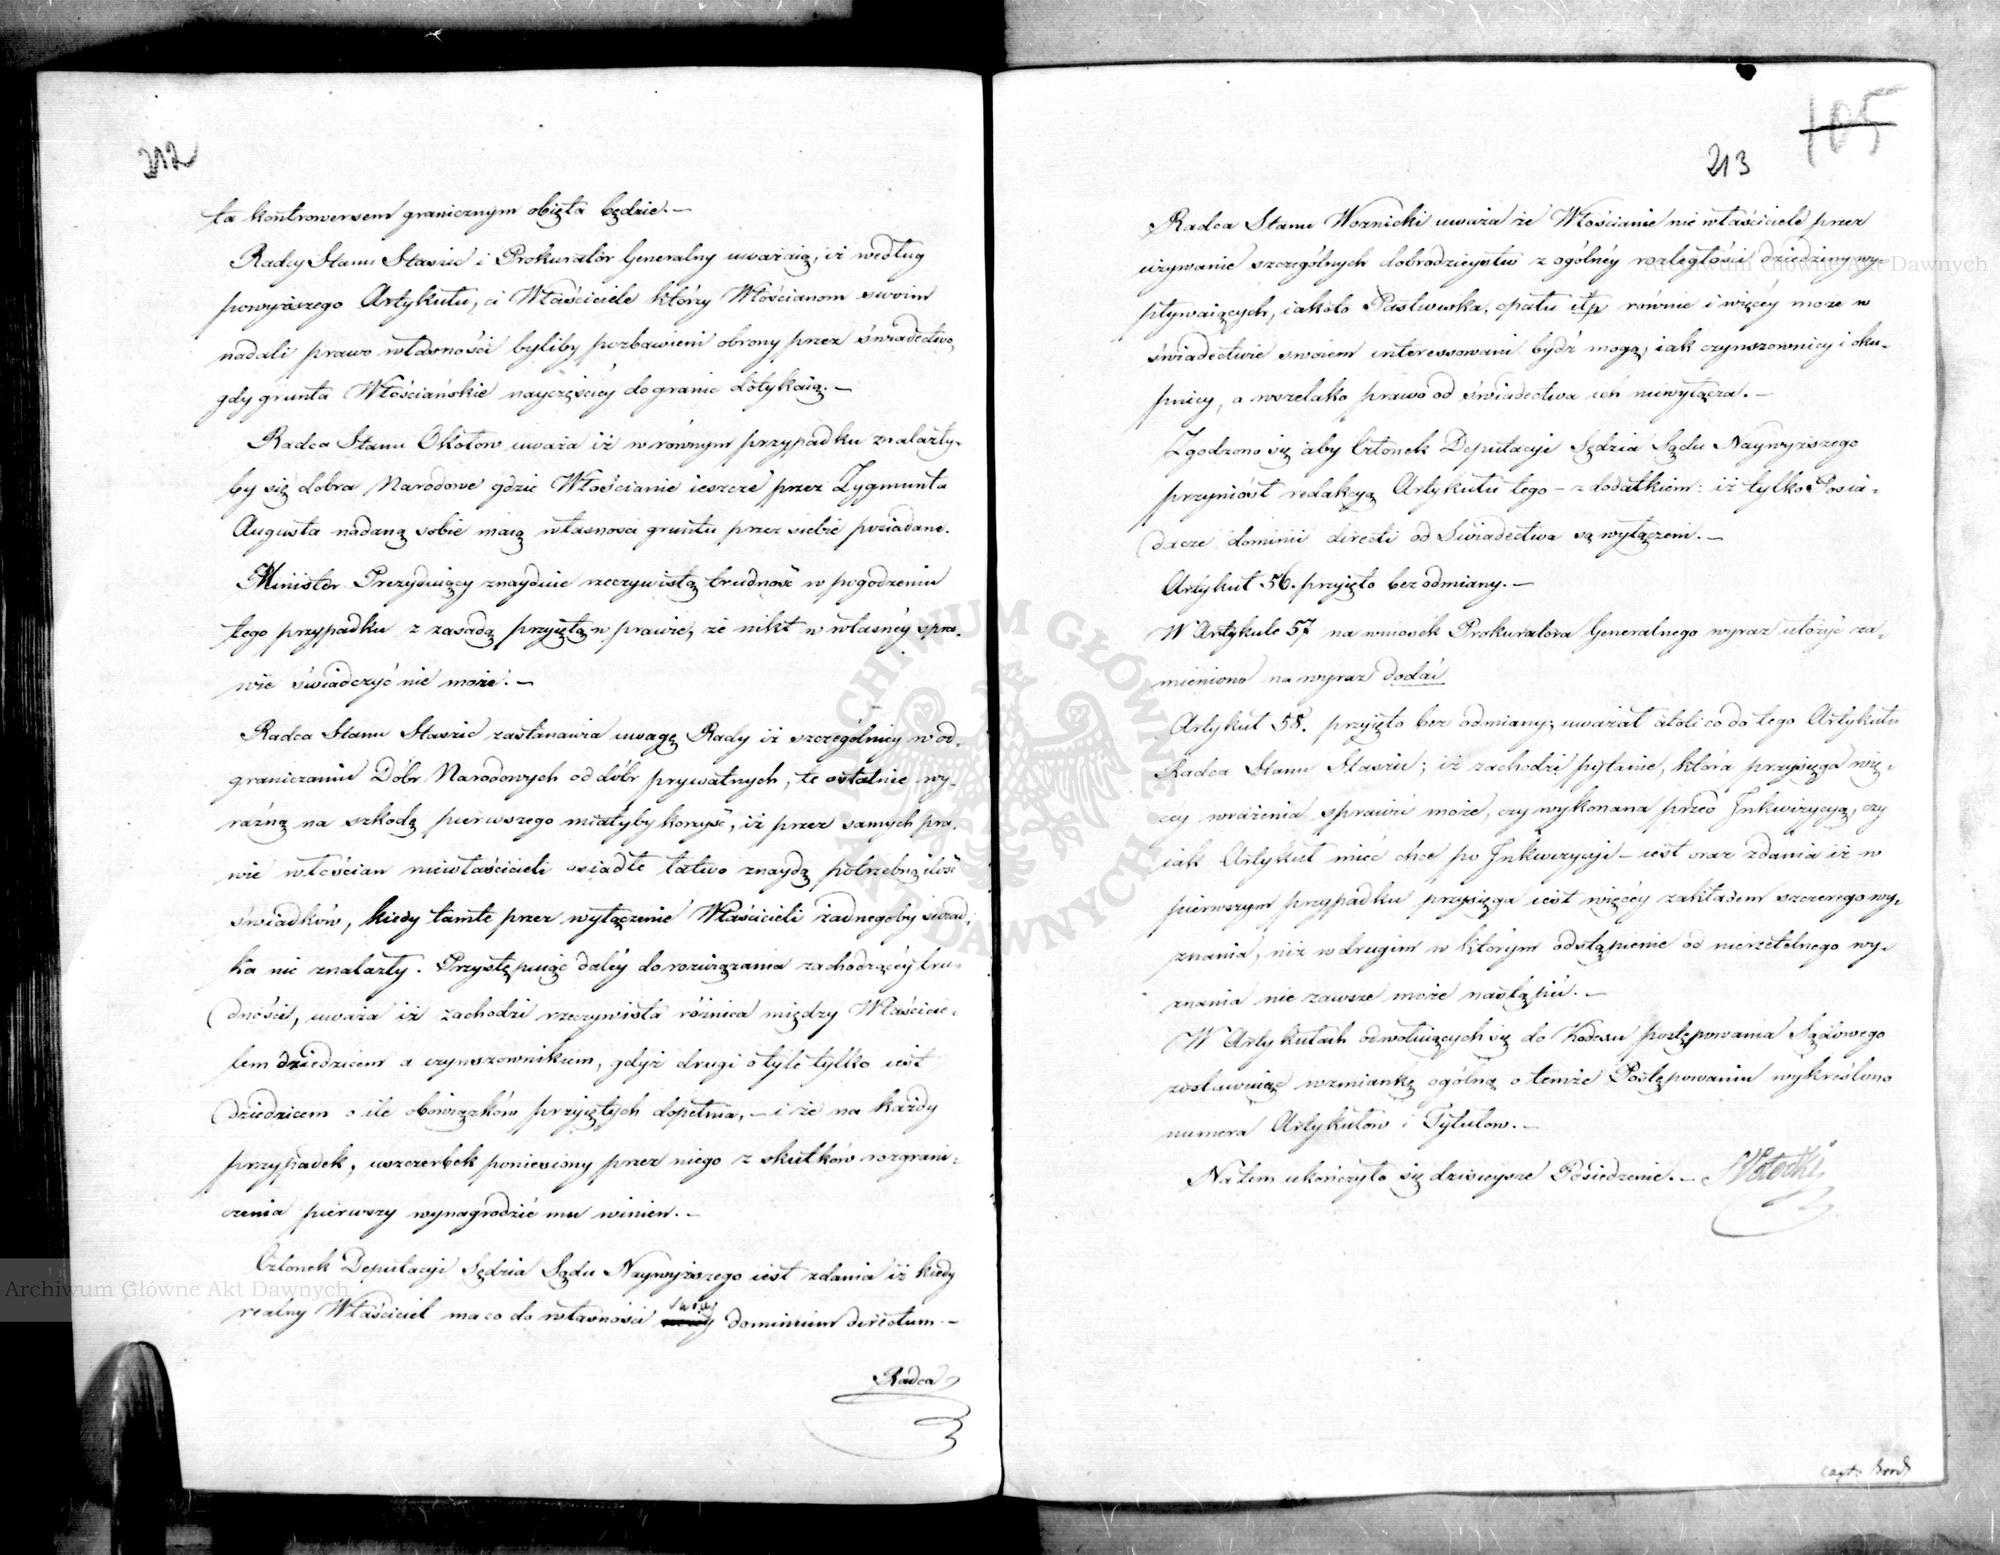 212
ta kontrowersem granicznym obięta będzie. —
Radcy Stanu Staszic i Prokurator Generalny uważaią, iż według
powyższego Artykułu, ci Właściciele którzy Włościanom swoim
nadali prawo własności byliby pozbawieni obrony przez świadectwo,
gdy grunta Włościańskie nayczęściey do granic dotykaią. —
Radca Stanu Okołow uważa iż w równym przypadku znalazły-
by się dobra Narodowe gdzie Włościanie ieszcze przez Zygmunta
Augusta nadaną sobie maią własność gruntu przez siebie posiadane.
Minister Prezyduiący znayduie rzeczywistą trudność w pogodzeniu
tego przypadku z zasadą przyiętą w prawie, że nikt w własnéy spra-
wie świadczyć nie może. —
Radca Stanu Staszic zastanawia uwagę Rady iż szczególniey w od-
graniczaniu Dóbr Narodowych od dóbr prywatnych, te ostatnie wy-
raźną na szkodę pierwszego miałyby korzyść, iż przez samych pra-
wie włościan niewłaścicieli osiadłe łatwo znaydą potrzebną ilość
świadków, kiedy tamte przez wyłączenie Właścicieli żadnegoby świad-
ka nie znalazły. Przystępuiąc daléy do rozwiązania zachodzącéy tru-
dności, uważa iż zachodzi rzeczywista różnica między Właścicie-
lem dziedzicem a czynszownikiem, gdyż drugi o tyle tylko iest
dziedzicem o ile obowiązków przyiętych dopełnia, — i że na każdy
przypadek, uszczerbek poniesiony przez niego z skutków rozgrani-
czenia pierwszy wynagrodzić mu winien. —
Członek Deputacyi Sędzia Sądu Naywyższego iest zdania iż kiedy
realny Właściciel ma co do własności swoiey dominium directum. —
Radca
105
213
Radca Stanu Woznicki uważa że Włościanie nie właściciele przez
używanie szczególnych dobrodzieystw z ogólnéy rozległości dziedziny wy-
pływaiących, iakoto Pastwiska, opału itp równie i więcéy może w
świadectwie swoiem interessowani bydź mogą, iak czynszownicy i oku-
pnicy, a wszelako prawo od świadectwa ich niewyłącza. —
Zgodzono się aby Członek Deputacyi Sędzia Sądu Naywyższego
przyniósł redakcyą Artykułu tego — z dodatkiem: iż tylko Posia-
dacze dominii directi od Swiadectwa są wyłączeni. —
Artykuł 56. przyięto bez odmiany. —
W Artykule 57 na wniosek Prokuratora Generalnego wyraz ułożyć za-
mieniono na wyraz dodać
Artykuł 58. przyięto bez odmiany; uważał atoli co do tego Artykułu
Radca Stanu Staszic; iż zachodzi pytanie, która przysięga wię-
cey wrażenia sprawić może, czy wykonana przed Inkwizycyą, czy
iak Artykuł mieć chce po Inkwizycyi — iest oraz zdania iż w
pierwszym przypadku przysięga iest więcéy zakładem szczerego wy-
znania, niż w drugim w którym odstąpienie od nierzetelnego wy-
znania nie zawsze może nastąpić. —
W Artykułach odwołuiących się do Kodexu postępowania Sądowego
zostawuiąc wzmiankę ogólną o temże Postępowaniu wykreślono
numera Artykułow i Tytułow. —
Na tem ukończyło się dzisieysze Posiedzenie. — SPotocki
Archiwum Główne Akt Dawnych
Archiwum Główne Akt Dawnych
ARCHIWUM GŁÓWNE AKT DAWNYCH